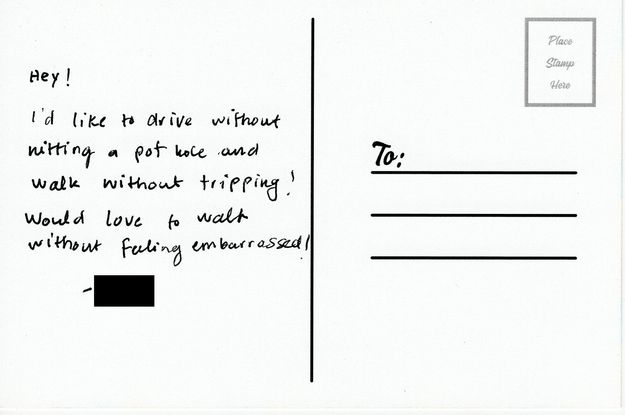 Hey!
I'd like to drive without
hitting a pot hole and
walk without tripping!
Would love to walk
without feeling embarrassed!
-
Place
Stamp
Here
To: